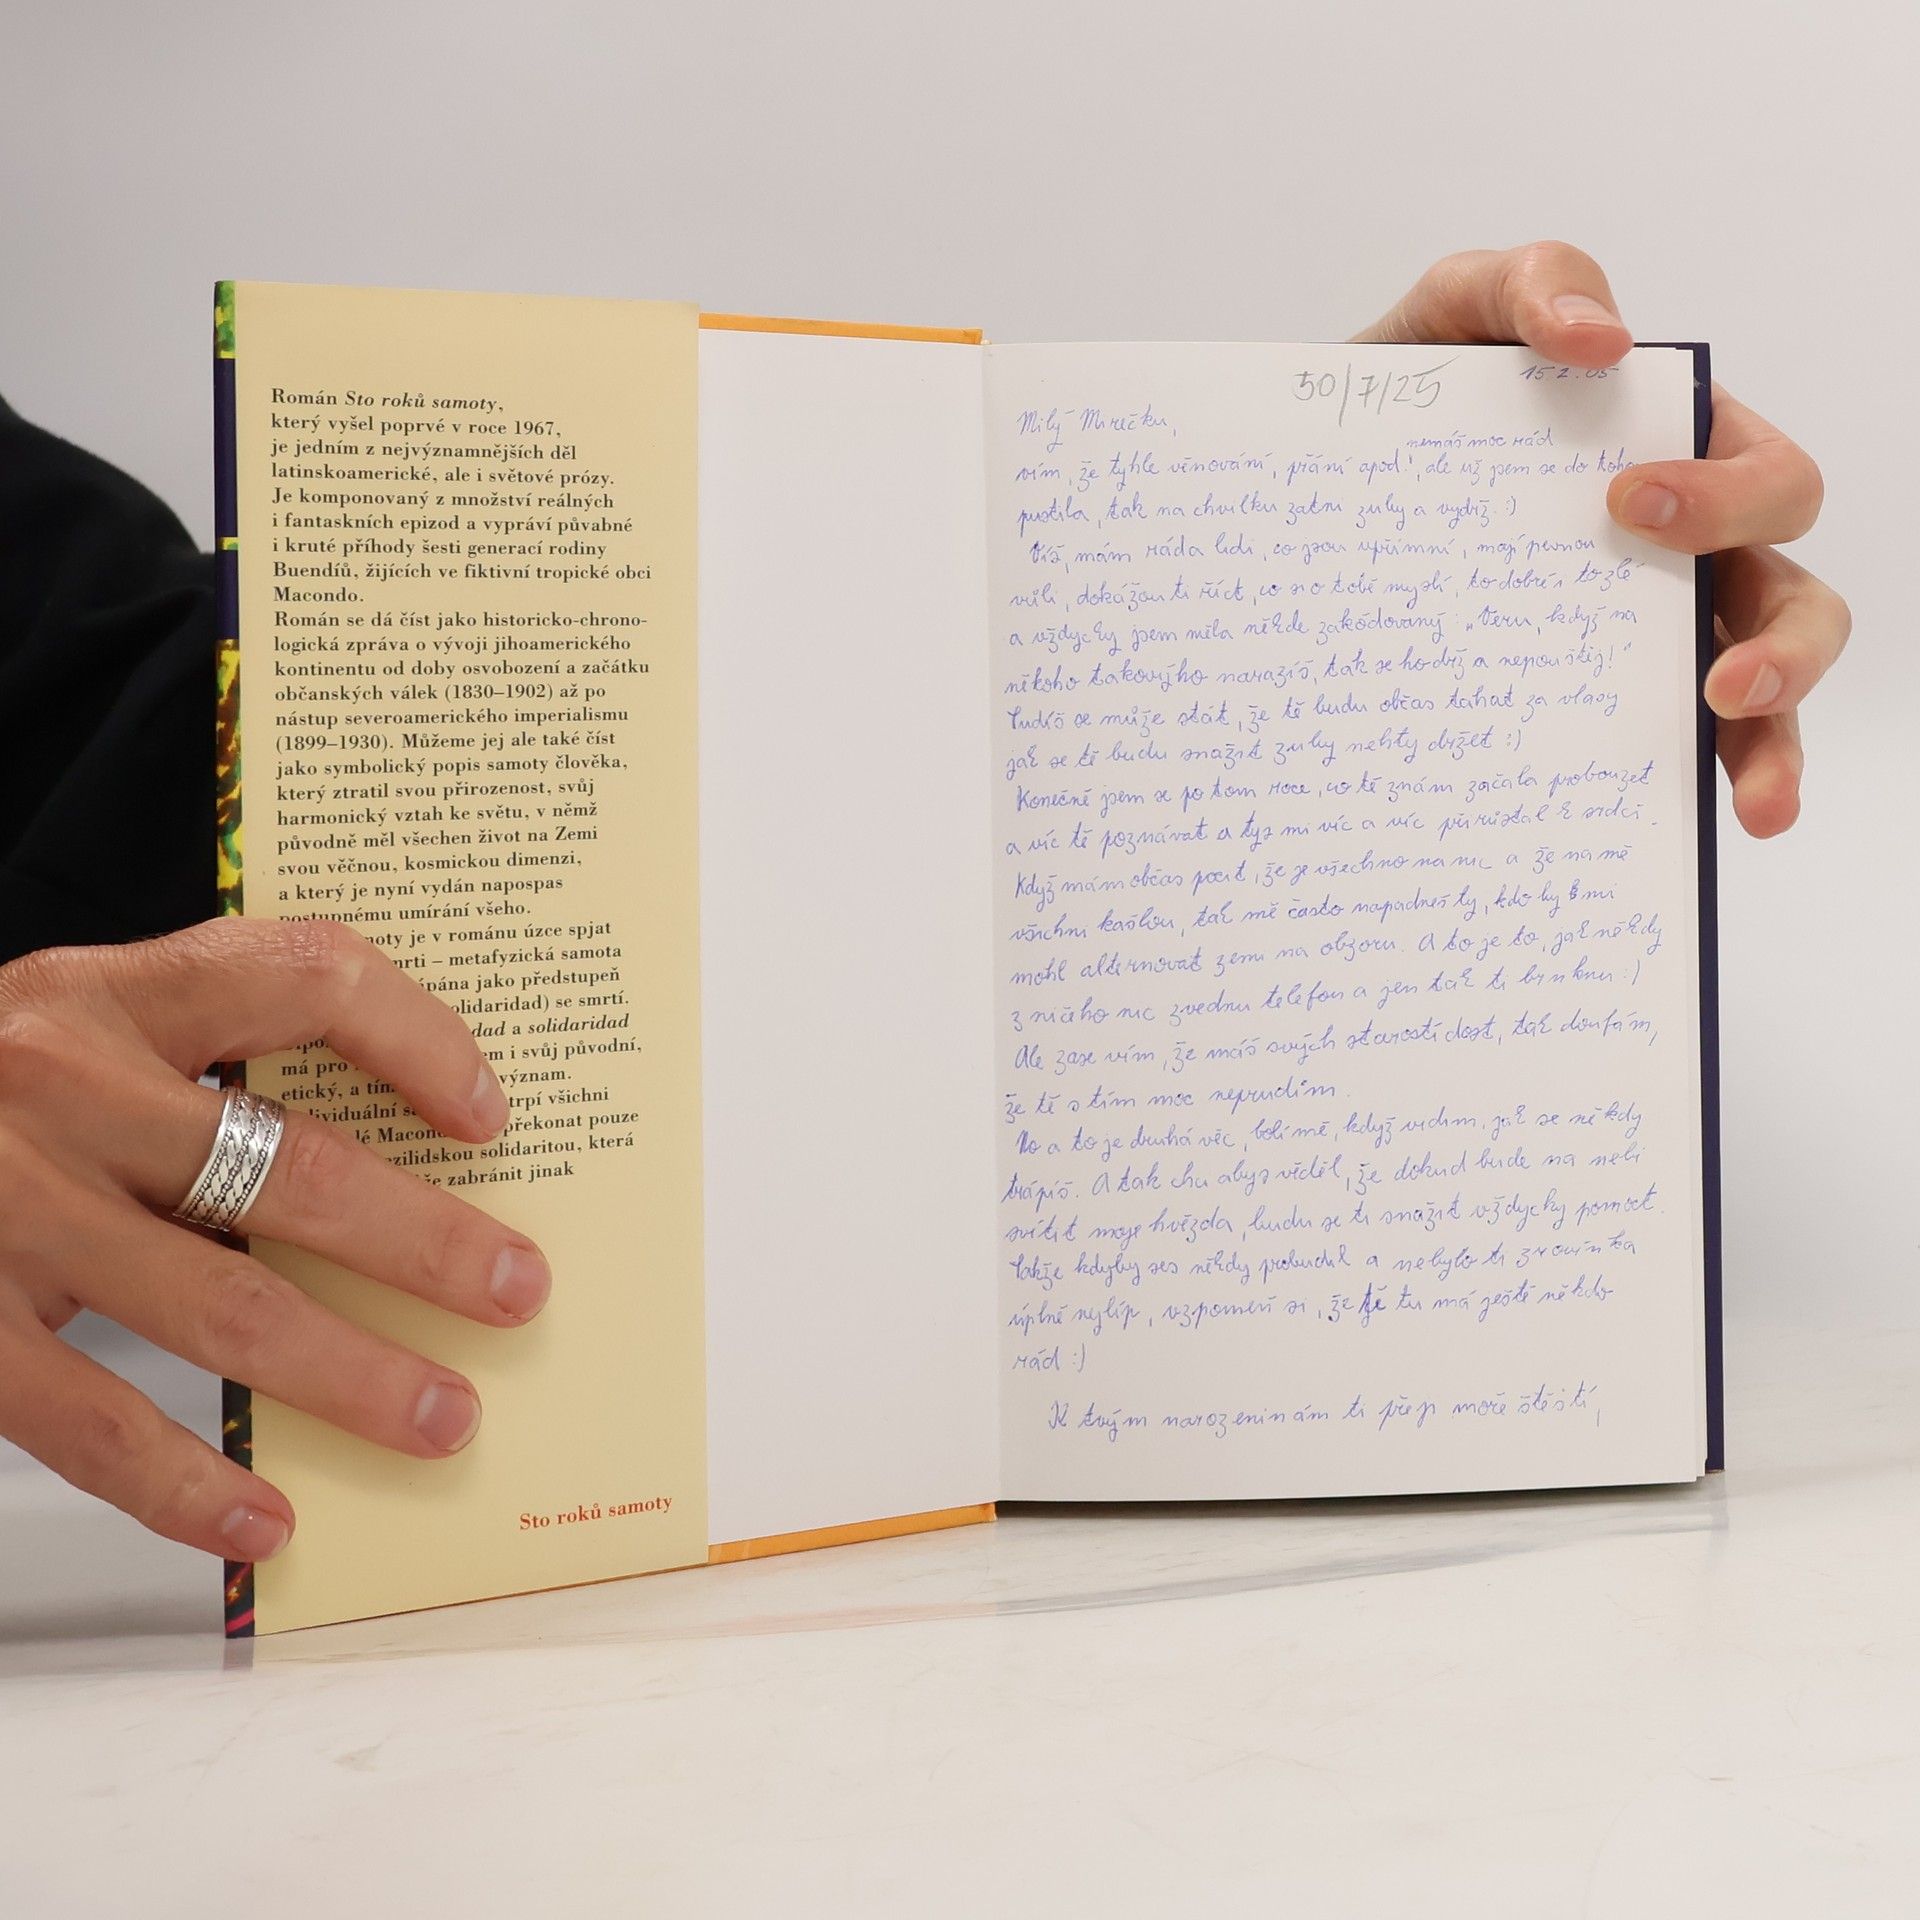 Román Sto roků samoty,
který vyšel poprvé v roce 1967,
je jedním z nejvýznamnějších děl
latinskoamerické, ale i světové prózy.
Je komponovaný z množství reálných
i fantaskních epizod a vypráví půvabné
i kruté příhody šesti generací rodiny
Buendíů, žijících ve fiktivní tropické obci
Macondo.
Román se dá číst jako historicko-chrono-
logická zpráva o vývoji jihoamerického
kontinentu od doby osvobození a začátku
občanských válek (1830–1902) až po
nástup severoamerického imperialismu
(1899–1930). Můžeme jej ale také číst
jako symbolický popis samoty člověka,
který ztratil svou přirozenost, svůj
harmonický vztah ke světu, v němž
původně měl všechen život na Zemi
svou věčnou, kosmickou dimenzi,
a který je nyní vydán napospas
postupnému umírání všeho.
noty je v románu úzce spjat
mrti – metafyzická samota
ápána jako předstupeň
olidaridad) se smrtí.
dad a solidaridad
em i svůj původní,
má pro
etický, a tím význam.
trpí všichni
lé Macon překonat pouze
ezilidskou solidaritou, která
že zabránit jinak
Sto roků samoty
50/7/25
15.2.05
Milý Mirečku,
nemáš moc rád
vím, že tyhle věnování, přání apod., ale už jsem se do toho
pustila, tak na chvilku zatni zuby a vydrž :)
Víš, mám ráda lidi, co jsou upřímní, mají pevnou
vůli, dokážou ti říct, co si o tobě myslí, to dobré i to zlé
a vždycky jsem měla někde zakódovaný: „Veru, když na
někoho takovýho narazíš, tak se ho drž a nepouštěj!“
Tudíž se může stát, že tě budu občas tahat za vlasy
jak se tě budu snažit zuby nehty držet :)
Konečně jsem se po tom roce, co tě znám začala probouzet
a víc tě poznávat a tys mi víc a víc přirůstal k srdci.
Když mám občas pocit, že je všechno na nic a že na mě
všichni kašlou, tak mě často napadneš ty, kdo by mi
mohl alternovat zemi na obzoru. A to je to, jak někdy
z ničeho nic zvednu telefon a jen tak ti brnknu :)
Ale zase vím, že máš svých starostí dost, tak doufám,
že tě s tím moc neprudím.
No a to je druhá věc, bolí mě, když vidím, jak se někdy
trápíš. A tak chci abys věděl, že dokud bude na nebi
svítit moje hvězda, budu se ti snažit vždycky pomoct.
Takže kdyby ses někdy probudil a nebylo ti zrovinka
úplně nejlíp, vzpomeň si, že tě tu má ještě někdo
rád :)
K tvým narozeninám ti přeji moře štěstí,